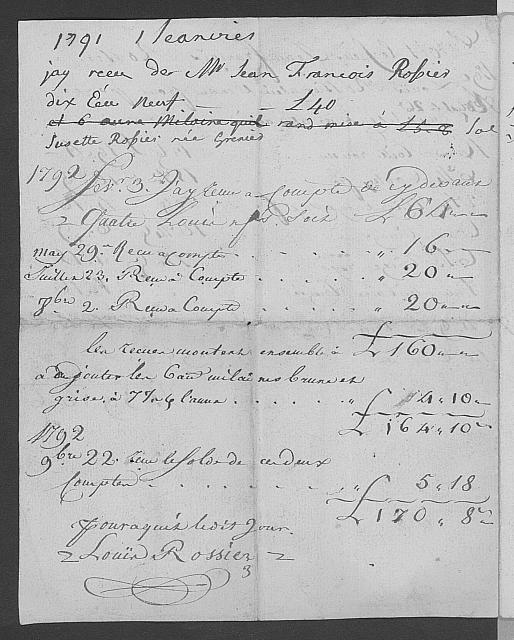 1791 1 Jeanvies
jay recu der Mr Jean François Rossier
dix Ecu Neuf — — £40
et 6 aune Milaine quil rand mise à £5.8 Sol
Susette Rossier née Grenier
1792 fevr. 3e Jay recu a Compte de cy devant
2 quatre Louis neufs soit £ 64 „ „
may 29. Recu a compte . . . . . „ 16 „
Juillet 23. Recu à Compte . . . . „ 20 „
7bre 2. Recu à Compte . . . . „ 20 „ „
les recues montent ensemble à £ 160 „ „
à ajouter les 6 au milaines brune et
grise, à 7 l'aune . . . . . „ £ 4 „ 10 „
£ 164 „ 10
1792
9bre 22. recu le Solde de ce deux
Comptes . . . . . . „ £ 5 „ 18
£ 170 „ 8
pour aquit ledit Jour.
2 Louïs Rossier 2
3